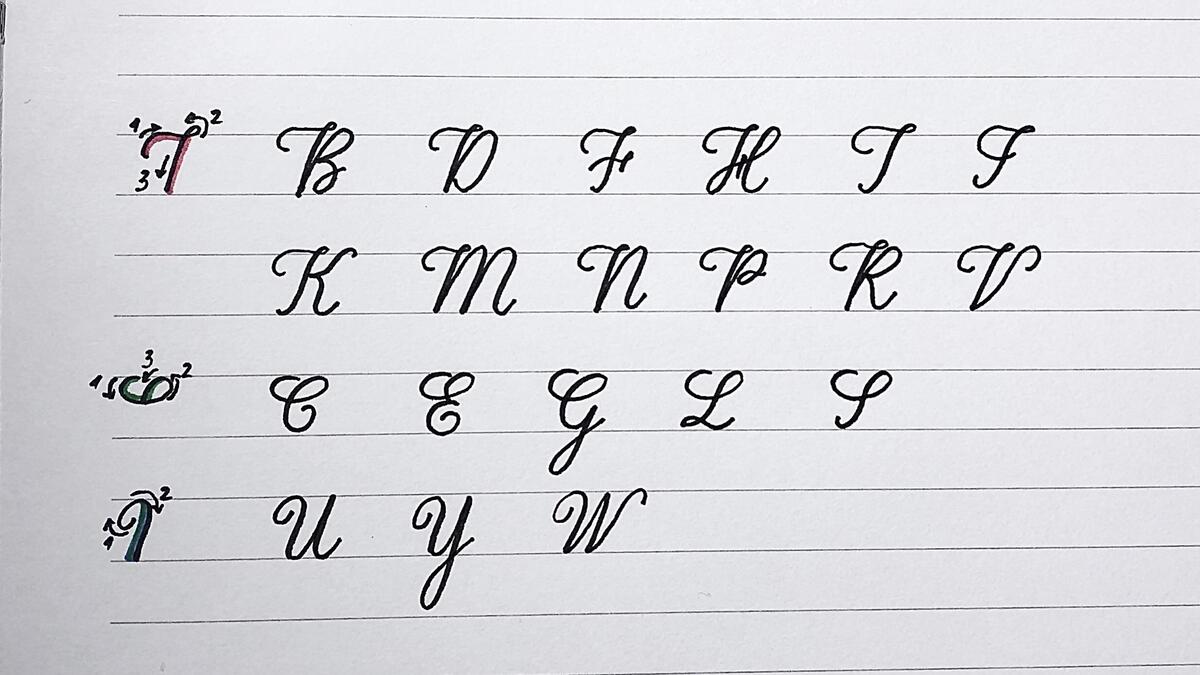 1 2 3 B D F H T I
K M N P R V
1 3 2 C E G L S
1 2 U Y W